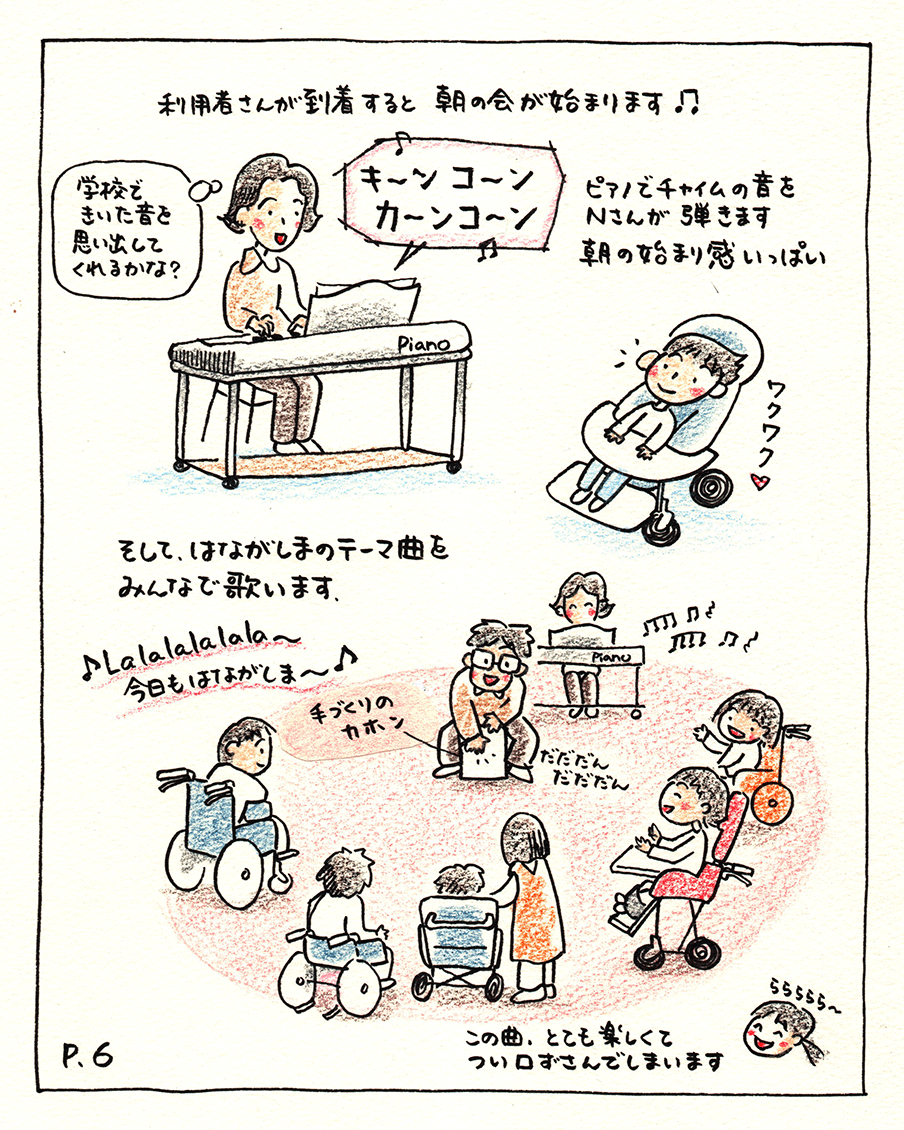 利用者さんが到着すると 朝の会が始まります♫
学校で
きいた音を
思い出して
くれるかな?
♪
キ〜ン コ〜ン
カ〜ンコ〜ン
♫
ピアノでチャイムの音を
Nさんが 弾きます
朝の始まり感いっぱい
Piano
ワクワク♥
そして、はながしまのテーマ曲を
みんなで歌います。
♪Lalalalalala〜
今日もはながしま〜♪
手づくりの
カホン
Piano
だだだん
だだだん
ららららら〜
この曲、とても楽しくて
つい口ずさんでしまいます
P.6